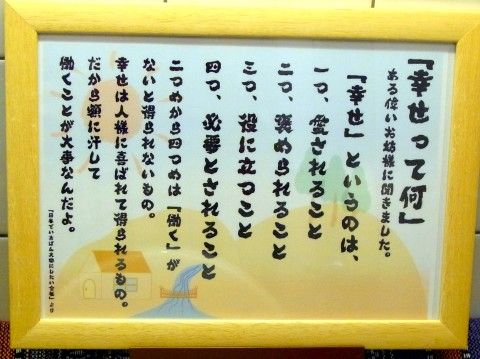 『幸せって何』
ある偉いお坊様に聞きました。
『幸せ』というのは、
一つ、愛されること
二つ、褒められること
三つ、役に立つこと
四つ、必要とされること
二つめから四つめは『働く』が
ないと得られないもの。
幸せは人様に喜ばれて得られるもの。
だから額に汗して
働くことが大事なんだよ。
『日本でいちばん大切にしたい会社』より